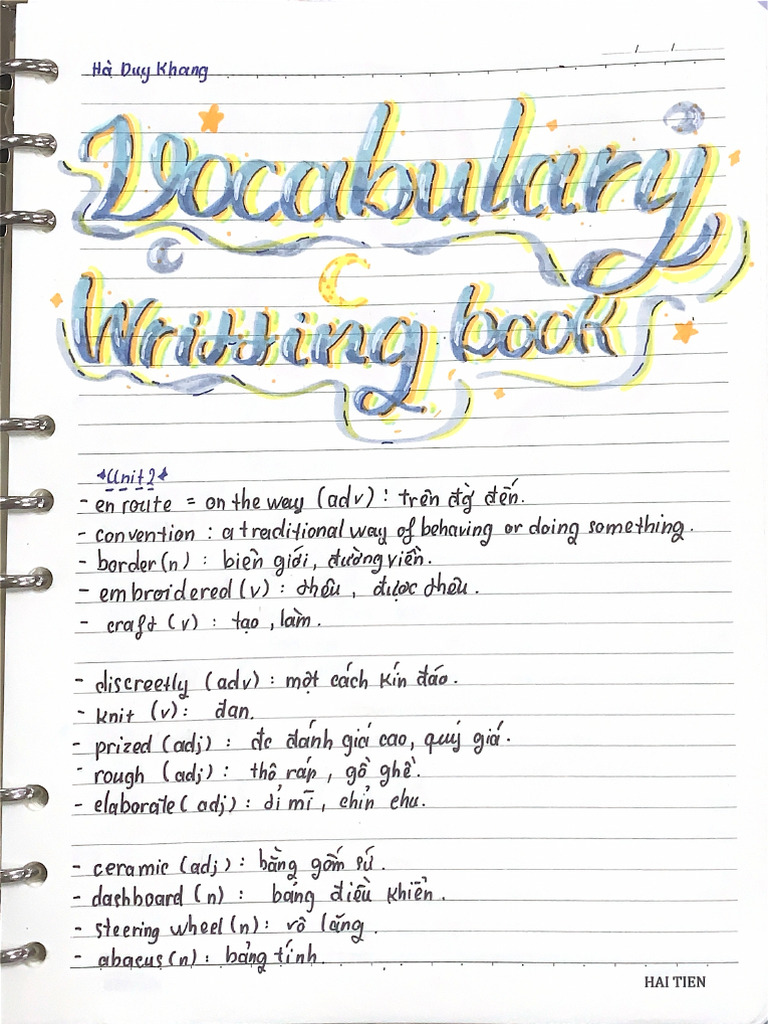 Hà Duy Khang
/ /
Vocabulary
Writting book
*Unit 2*
- en route = on the way (adv) : trên đg̀ đến.
- convention : a traditional way of behaving or doing something.
- border (n) : biên giới, đường viền.
- embroidered (v) : thêu , được thêu .
- craft (v) : tạo , làm .
- discreetly (adv) : một cách kín đáo .
- knit (v) : đan.
- prized (adj) : đc đánh giá cao, quý giá .
- rough (adj) : thô ráp , gồ ghề .
- elaborate (adj) : tỉ mĩ , chỉn chu.
- ceramic (adj) : bằng gốm sứ .
- dashboard (n) : bảng điều khiển .
- steering wheel (n) : vô lăng .
- abacus (n) : bảng tính .
HAI TIEN